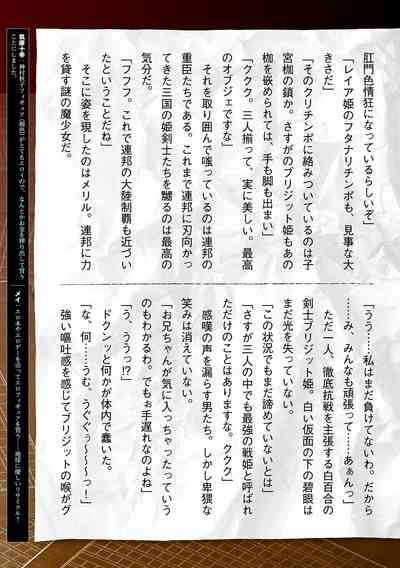 肛門色情狂になっているらしいぞ」
「レイア姫のフタナリチンポも、見事な大
きさだ」
「そのクリチンポに絡みついているのは子
宮枷の鎖か。さすがのブリジット姫もあの
枷を嵌められては、手も脚も出まい」
「ククク。三人揃って、実に美しい。最高
のオブジェですな」
　それを取り囲んで嗤っているのは連邦の
重臣たちである。これまで連邦に刃向かっ
てきた三国の姫剣士たちを嬲るのは最高の
気分だ。
「フフフ。これで連邦の大陸制覇も近づい
たということだね」
　そこに姿を現したのはメリル。連邦に力
を貸す謎の魔少女だ。
「うう……私はまだ負けてないわ。だから
……み、みんなも頑張って……あぁんっ」
　ただ一人、徹底抗戦を主張する白百合の
剣士ブリジット姫。白い仮面の下の碧眼は
まだ光を失っていない。
「この状況でもまだ諦めていないとは」
「さすが三人の中でも最強の戦姫と呼ばれ
ただけのことはありますな。ククク」
　感嘆の声を漏らす男たち。しかし卑猥な
笑みは消えていない。
「お兄ちゃんが気に入っちゃったっていう
のもわかるわ。でもぉ手遅れなのよね」
「う、ううっ!?」
　ドクンッと何かが体内で蠢いた。
「な、何……うむ、うぐぐぅ〜〜〜っ！」
強い嘔吐感を感じてブリジットの喉がグ
ことにしました。